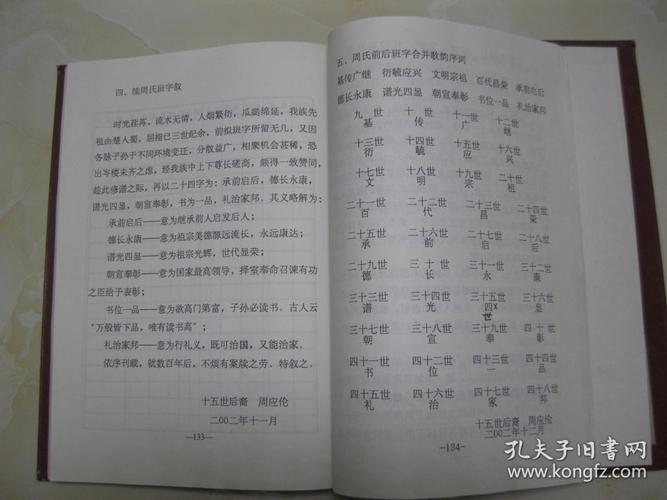 四、续周氏班字叙
时光荏苒，流水无情，人烟繁衍，瓜瓞绵延，我族先
祖由楚人蜀，屈指已三世纪余，前拟班字所留无几，又因
各脉子孙于不同环境变迁，分散益广，相聚机会甚稀，恐
出岑楼未齐之虑，经我族中上下尊长磋商，颇得一致赞同，
趁此修谱之际，再以二十四字为：承前启后，德长永康，
谱光四显，朝宣奉彰，书为一品，礼治家邦，其义略解为：
承前启后——意为继承前人启发后人；
德长永康——意为祖宗美德源远流长，永远康达；
谱光四显——意为祖宗光辉，世代显荣；
朝宣奉彰——意为国家最高领导，择室奉命召谏有功
之臣给予表彰；
书位一品——意为欲高门第富，子孙必读书。古人云
“万般皆下品，唯有读书高”；
礼治家邦——意为行礼义，既可治国，又能治家．
依序刊载，就数百年后，不烦有案牍之劳．特叙之．
十五世后裔 周应伦
二00二年十一月
—133—
五、周氏前后班字合并歌韵序词
基传广继 衍毓应兴 文明宗祖 百代昌荣 承前启后
德长永康 谱光四显 朝宣奉彰 书位一品 礼治家邦
九世 十世 十一世 十二世
基 传 广 继
十三世 十四世 十五世 十六世
衍 毓 应 兴
十七世 十八世 十九世 二十世
文 明 宗 祖
二十一世 二十二世 二十三世 二十四世
百 代 昌 荣
二十五世 二十六世 二十七世 二十八世
承 前 启 后
二十九世 三十世 三十一世 三十二世
德 长 永 康
三十三世 三十四世 三十五世 三十六世
谱 光 四 显
世
三十七世 三十八世 三十九世 四十世
朝 宣 奉 彰
四十一世 四十二世 四十三世 四十四世
书 位 一 品
四十五世 四十六世 四十七世 四十八世
礼 治 家 邦
十五世后裔 周应伦
二00二年十二月
-134-
孔夫子旧书网
www.kongfz.com